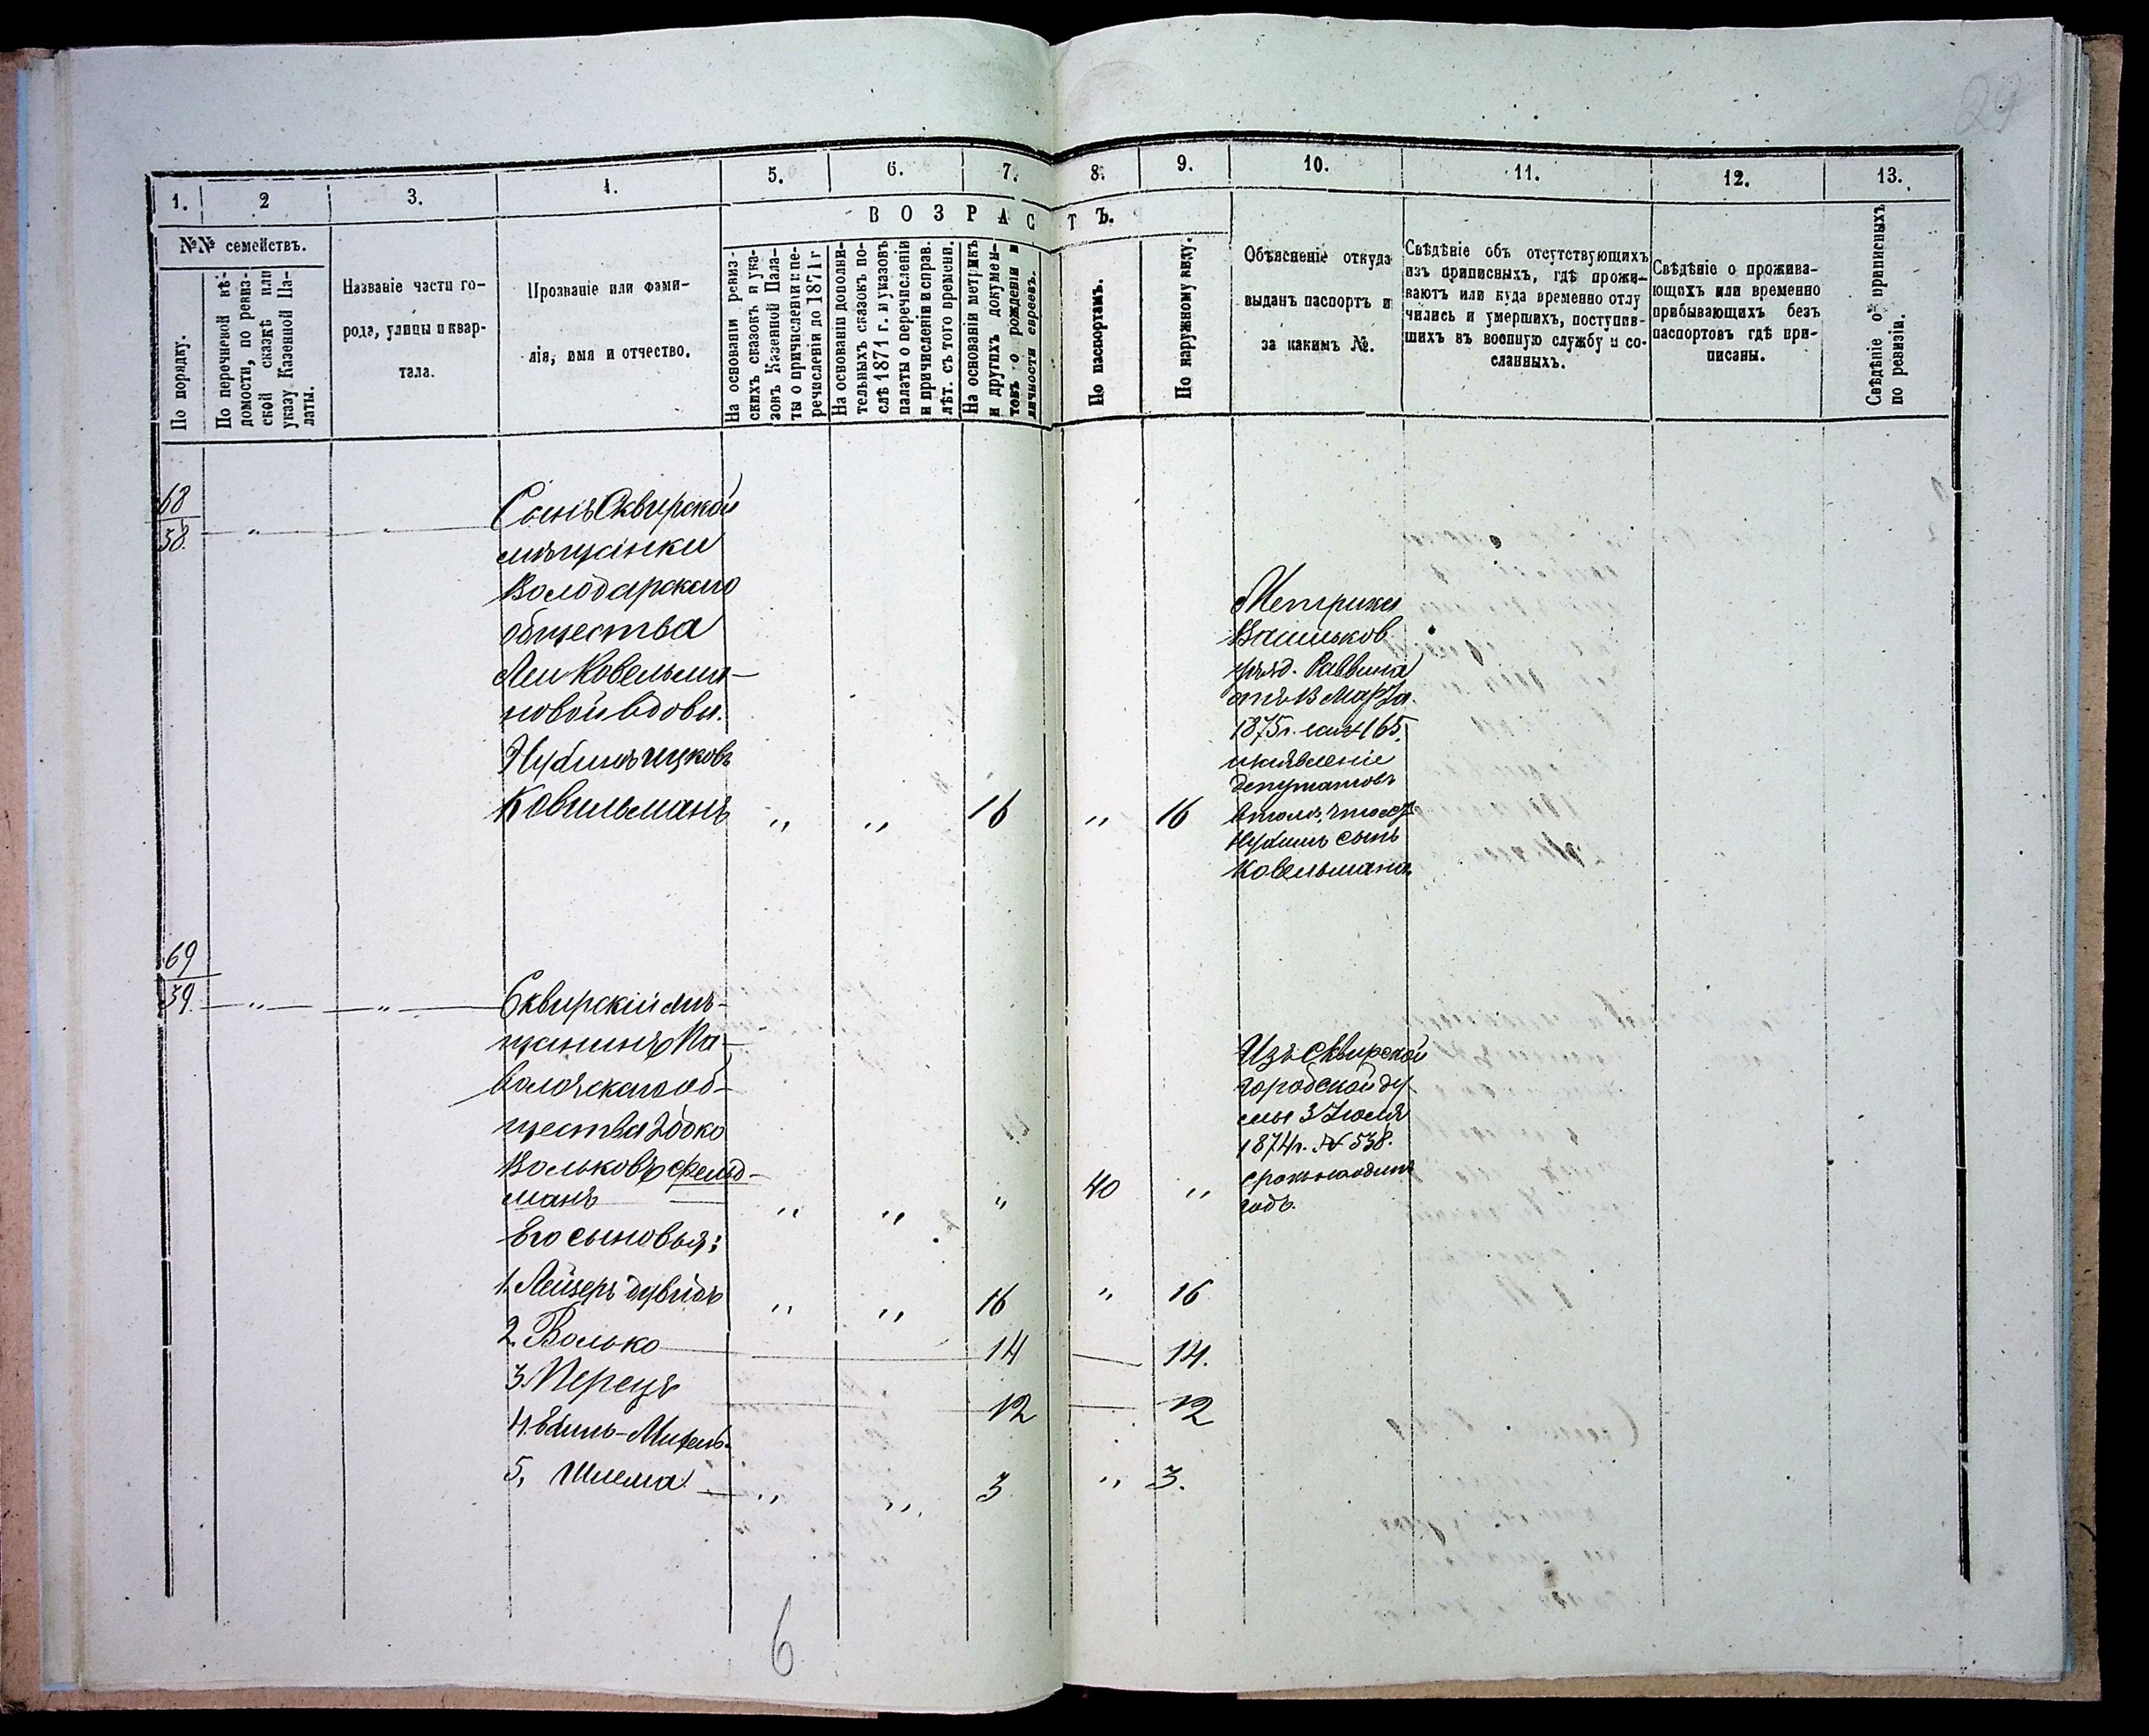 29
1.
2
3.
4.
5.
6.
7.
8.
9.
10.
11.
12.
13.
№№ семействъ.
ВОЗРАСТЪ.
По порядку.
По перечневой вѣ-
домости, по ревиз-
ской сказкѣ или
указу Казенной Па-
латы.
Названіе части го-
рода, улицы и квар-
тала.
Прозваніе или фами-
лія, имя и отчество.
На основаніи ревиз-
скихъ сказокъ и ука-
зовъ Казенной Пала-
ты о причисленіи и пе-
речисленіи до 1871 г
На основаніи дополни-
тельныхъ сказокъ по-
слѣ 1871 г. и указовъ
палаты о перечисленіи
и причисленіи и справ.
лѣт. съ того времени.
На основаніи метрикъ
и другихъ докумен-
товъ о рожденіи и
личности евреевъ.
По паспортамъ.
По наружному виду.
Объясненіе откуда
выданъ паспортъ и
за какимъ №.
Свѣдѣніе объ отсутствующихъ
изъ приписныхъ, гдѣ прожи-
ваютъ или куда временно отлу
чились и умершихъ, поступив-
шихъ въ военную службу и со-
сланныхъ.
Свѣдѣніе о прожива-
ющихъ или временно
прибывающихъ безъ
паспортовъ гдѣ при-
писаны.
Свѣдѣніе о приписныхъ
по ревизіи.
68
38.
Сынъ Сквирской
мѣщанки
Володарскаго
общества
Леи Ковельма-
новой вдовы.
Нухимъ Ицковъ
Ковильманъ " " 16 " 16
Метрики
Васильков.
уѣзд. Раввина
отъ 13 Марта
1875г. за № 165.
депутатовъ
Нухимъ сынъ
Ковельмана
69
39. " "
Сквирскій мѣ-
щанинъ Па-
волочскаго об-
щества Іойко
Вольковъ Фельд-
манъ " " " 40 "
Изъ Сквирской
городской ду-
мы 3 Іюля
1874г. № 538.
срокъ на одинъ
годъ.
Его сыновья:
1. Лейзеръ Дувидъ " " 16 " 16
2. Волько 14 14.
3. Перецъ 12 12
4.
5, Шлема " " 3 " 3.
6